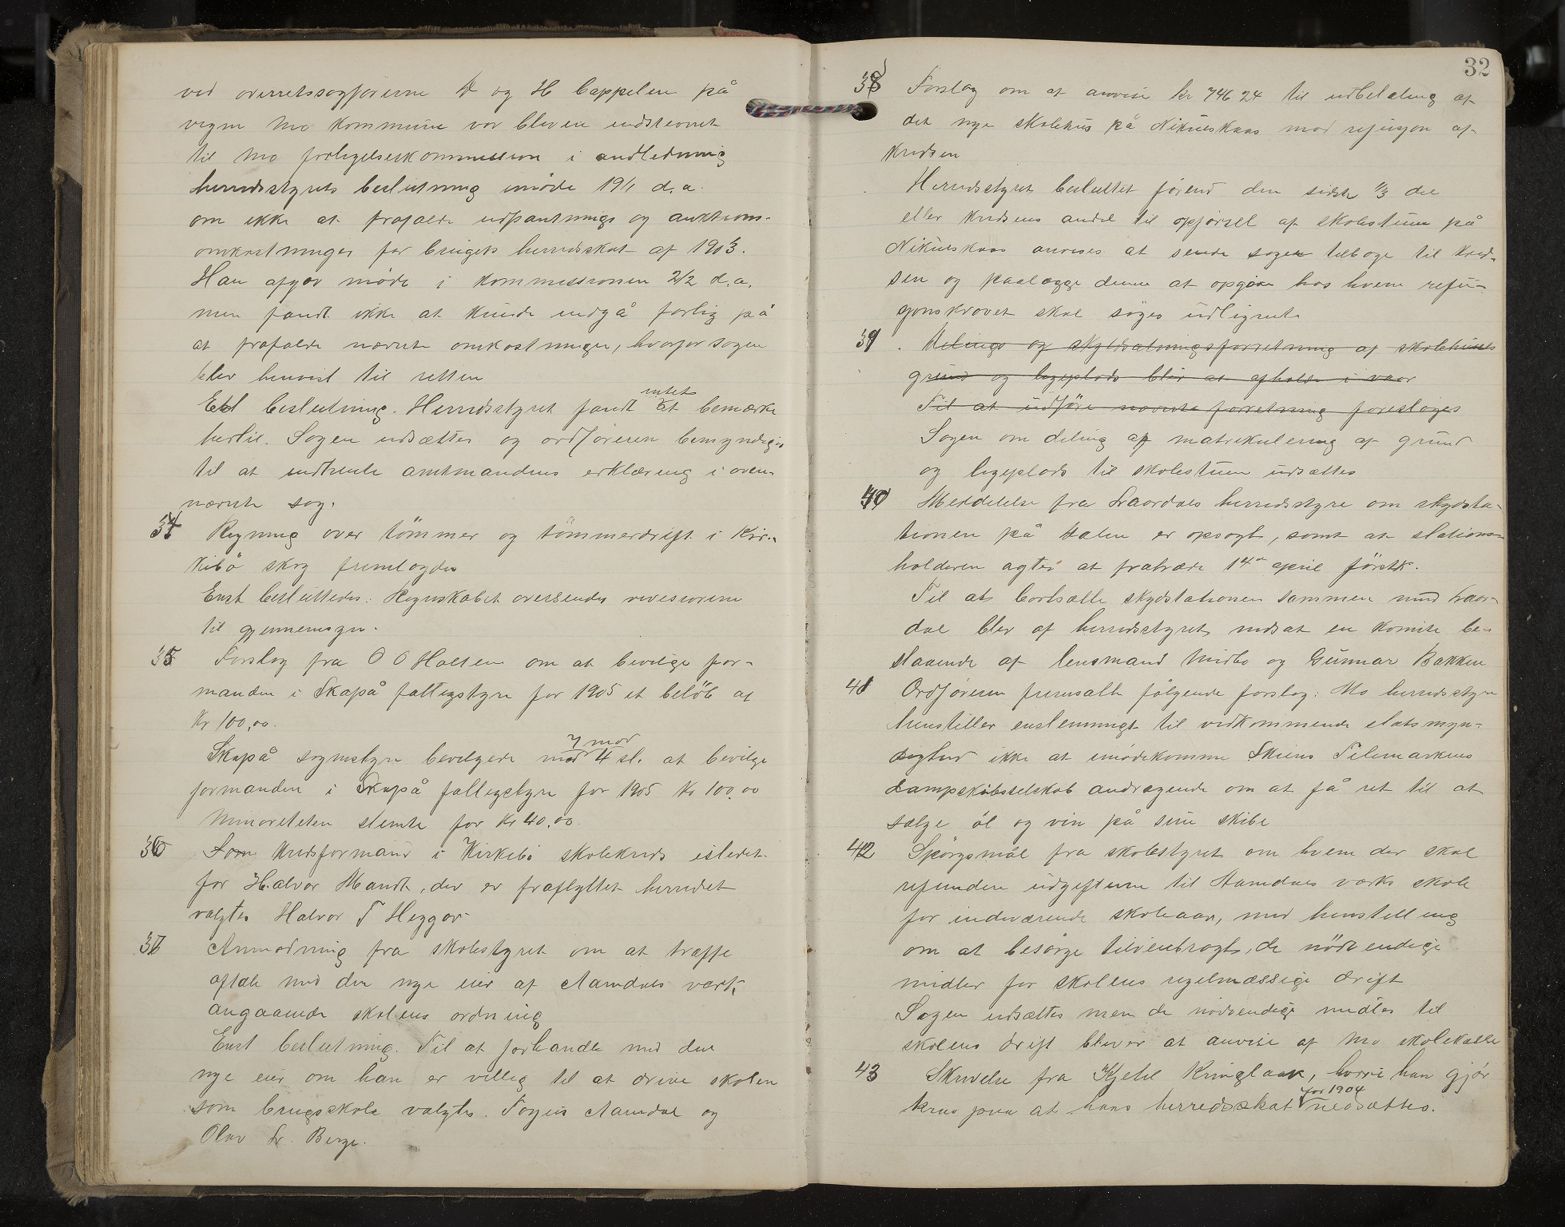 ved overretssagförerne D og H Cappelen på
vegne Mo kommune var bleven indstevnet
til Mo forligelseskommission i andledning
herredsstyrets beslutning i möde 19/1 d.a.
om ikke at frafalde udpantnings og auktions-
omkostninger for brugets herredsskat af 1903.
Han afgav möde i kommissionen 2/2 d.a.
men fandt ikke at kunde indgå forlig på
at frafalde nævnte omkostninger, hvorfor sagen
blev henvist til retten
Enst beslutning. Herredsstyret fandt intet at bemærke
hertil. Sagen udsættes og ordföreren bemyndiges
til at indhente amtmandens erklæring i oven-
nævnte sag.
34 Regning over tömmer og tömmerdrift i Kir-
kebö skog fremlagdes
Enst besluttedes: Regnskabet oversendes revisorerne
til gjennemsyn.
35 Forslag fra O O Holten om at bevilge for-
manden i Skapå fattigstyre for 1905 et belöb af
Kr 100,00.
Skapå sognestyre bevilgede med 7 mod 4 st. at bevilge
formanden i Skapå fattigstyre for 1905 Kr 100,00
Minoriteten stemte for Kr 40,00
36 Som kredsformand i Kirkebö skolekreds istedet
for Halvor Mandt, der er fraflyttet herredet
valgtes Halvor T Heggov
37 Anmodning fra skolestyret om at træffe
aftale med den nye eier af Aamdals værk,
angaaende skolens ordning
Enst beslutning. Til at forhandle med den
nye eier om han er villig til at drive skolen
som brugsskole valgtes. Targeis Aamdal og
Olav L. Berge.
32
38 Forslag om at anvise kr 746 24 til udbetaling af
det nye skolehus på Nikuleskaas mod refusjon af
kredsen
Herredsstyret besluttet förend den sidste 1/3 del
eller kredsens andel til opförsel af skolestuen på
Nikuleskaas anvises at sende sagen tilbage til kred-
sen og paalægge denne at opgive hos hvem refu-
sjonskravet skal söges udlignet
39. Delings og skyldsætningsforretning af skolehusets
grund og legeplads blir at afholde i vaar
Til at udföre nævnte forretning foreslåges
Sagen om deling af matrikulering af grund
og legeplads til skolestuen udsættes
40 Meddelelse fra Laardals herredsstyre om skydssta-
tionen på Dalen er opsagt, samt at stations-
holderen agter at fratræde 14de april förstk.
Til at bortsætte skydstationen sammen med Laar-
dal blev af herredsstyret nedsat en komite be-
staaende af lensmand Midbö og Gunnar Bakken
41 Ordföreren fremsatte fölgende forslag: Mo herredsstyre
henstiller enstemmigt til vedkommende statsmyn-
dighed ikke at imödekomme Skiens Telemarkens
Dampskibsselskab andragende om at få ret til at
sælge öl og vin på sine skibe
42 Spörgsmål fra skolestyret om hvem der skal
refundere udgifterne til Aamdals værks skole
for indeværende skoleaar, med henstilling
om at besörge tilveiebragt, de nödvendige
midler for skolens regelmæssige drift
Sagen udsættes men de nödvendige midler til
skolens drift bliver at anvise af Mo skolekasse
43 Skrivelse fra Kjetil Kringlaak, hvori han gjör
krav paa at hans herredsskat for 1904 nedsættes.